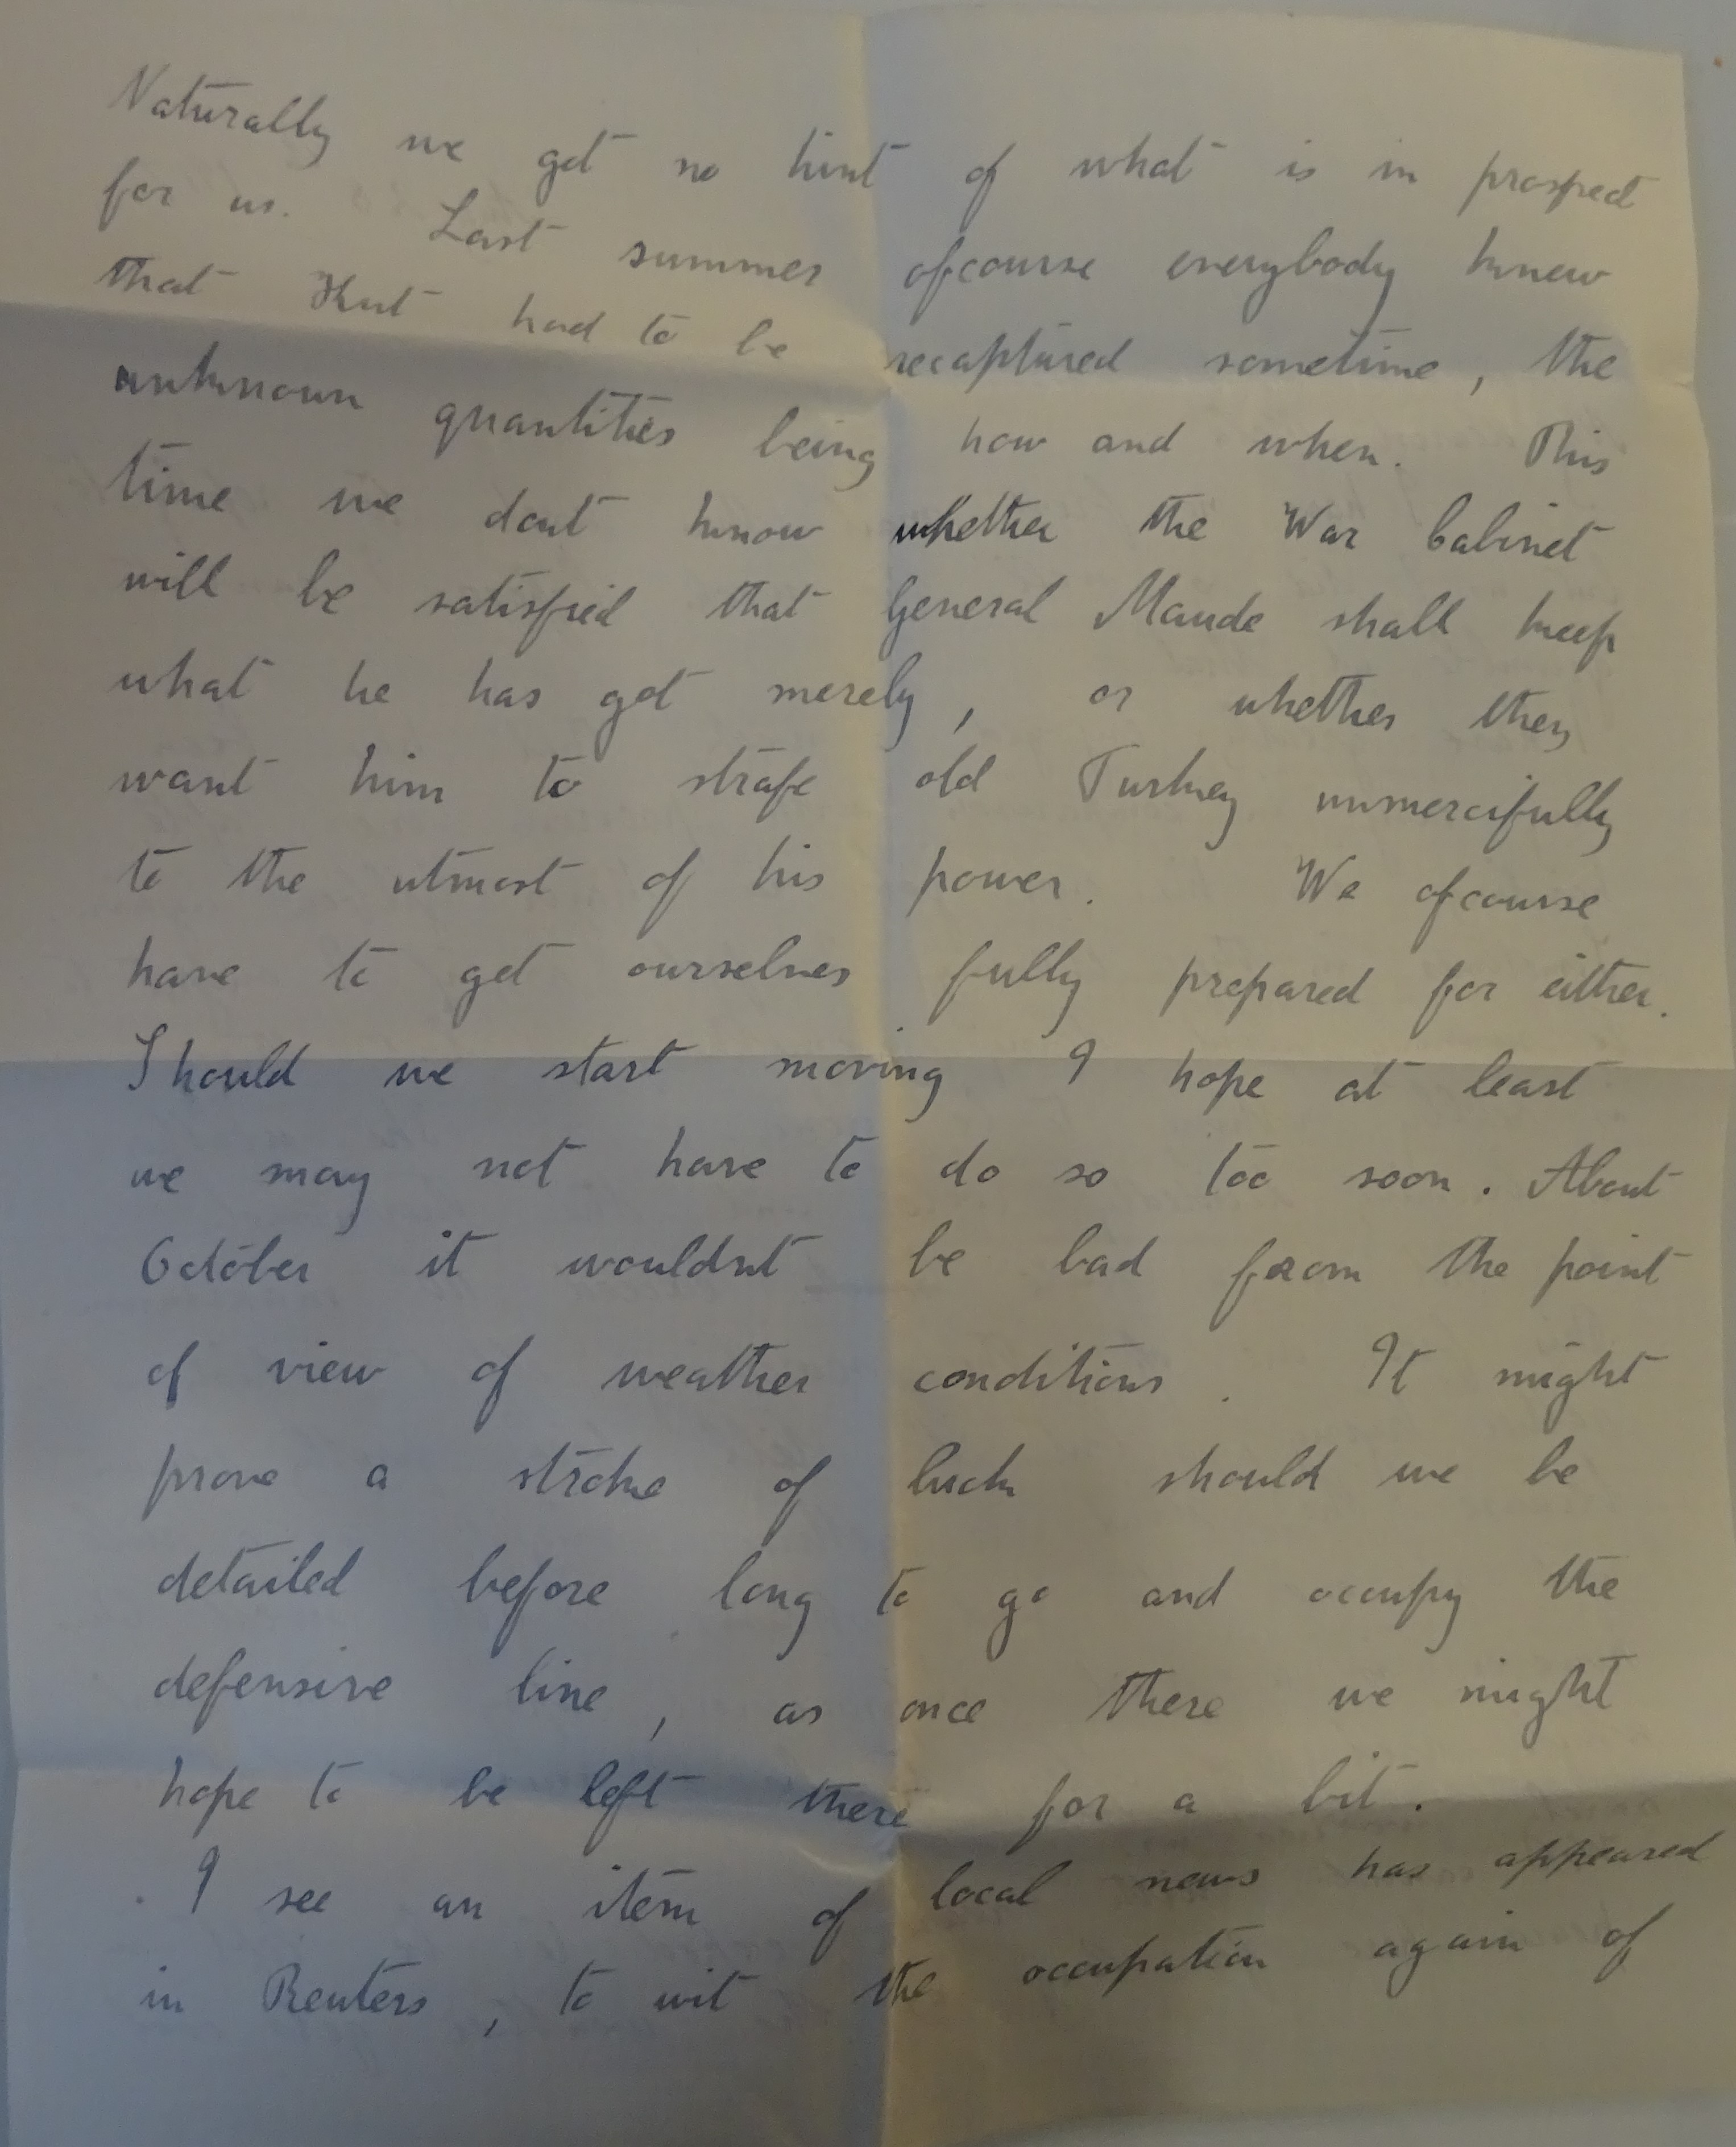 Naturally we get no hint of what is in prospect
for us. Last summer ofcourse everybody knew
that Kut had to be recaptured sometime, the
unknown quantities being how and when. This
time we dont know whether the War Cabinet
will be satisfied that General Maude shall keep
what he has got merely, or whether they
want him to strafe old Turkey unmercifully
to the utmost of his power. We ofcourse
have to get ourselves fully prepared for either.
Should we start moving I hope at least
we may not have to do so too soon. About
October it wouldnt be bad from the point
of view of weather conditions. It might
prove a stroke of luck should we be
detailed before long to go and occupy the
defensive line, as once there we might
hope to be left there for a bit.
I see an item of local news has appeared
in Reuters, to wit the occupation again of